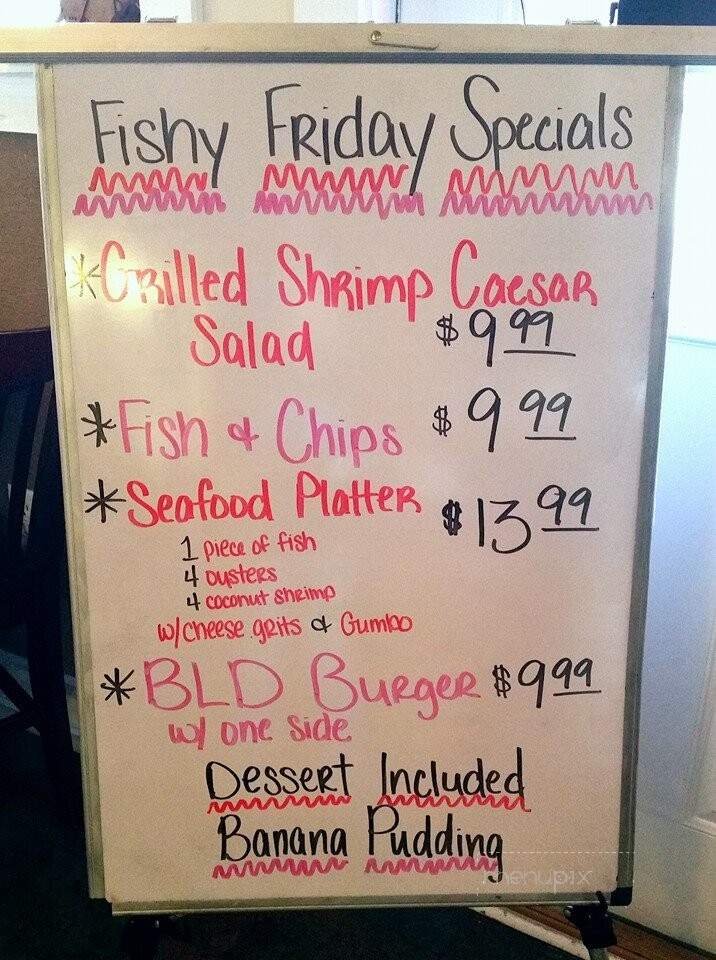 Fishy Friday Specials
*Grilled Shrimp Caesar
Salad $9.99
*Fish & Chips $9.99
*Seafood Platter $13.99
1 piece of fish
4 oysters
4 coconut shrimp
w/cheese grits & Gumbo
*BLD Burger $9.99
w/ one side
Dessert Included
Banana Pudding
menupix